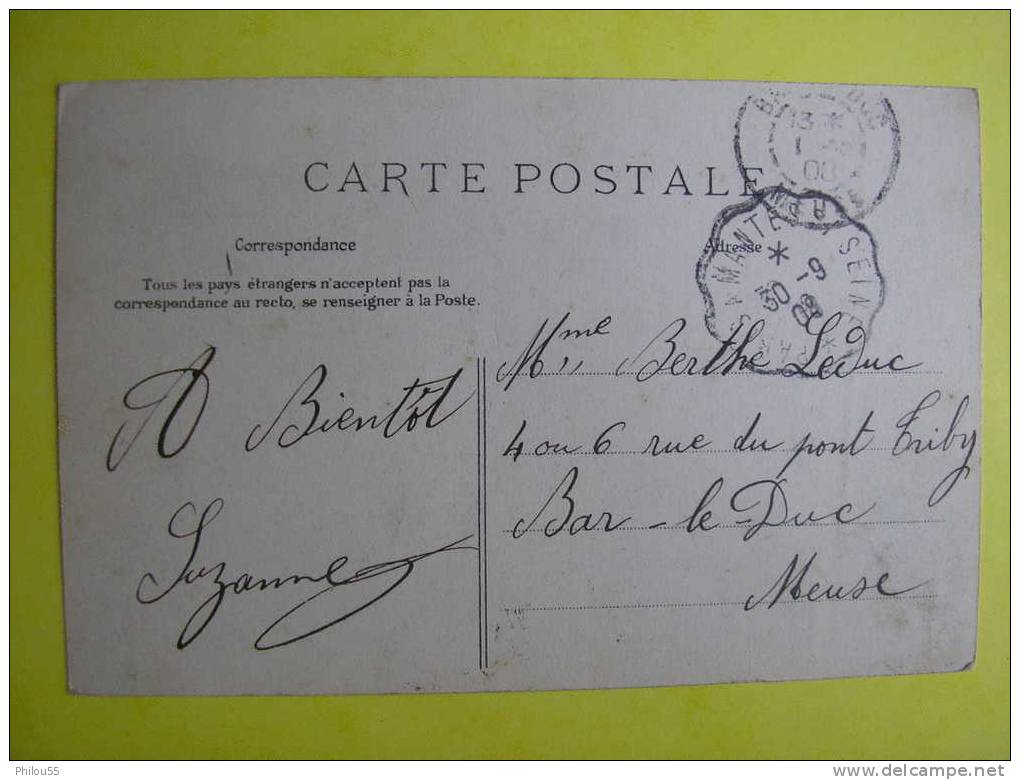 CARTE POSTALE
Correspondance
Adresse
Tous les pays étrangers n'acceptent pas la
correspondance au recto, se renseigner à la Poste.
MANTES
SEINE
30
9
08
13
1
A Bientôt
Suzanne
Mme Berthe Leduc
4 ou 6 rue du pont Triby
Bar-le-Duc
Meuse
Philou55
www.delcampe.net